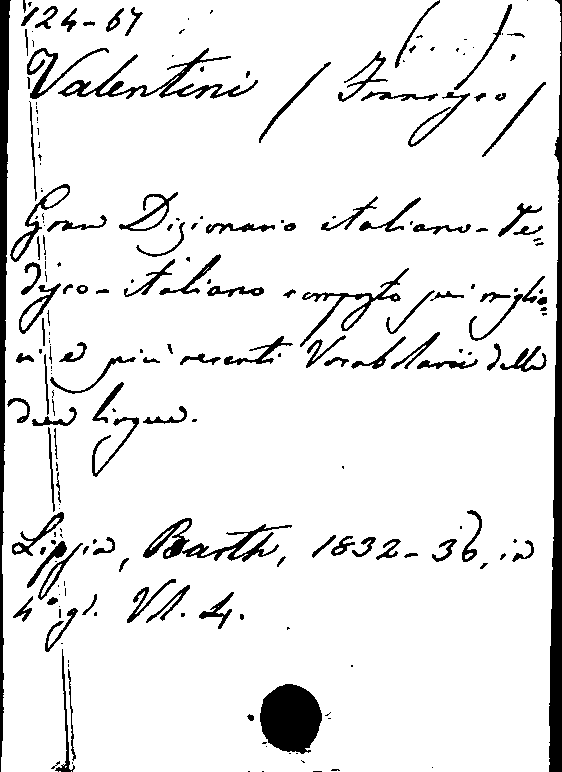 124-67
Valentini (Francesco)
Gran Dizionario italiano-te=
desco-italiano composto sui miglio=
ri e più recenti Vocabolarii delle
due lingue.
Lipsia, Barth, 1832-36, in
4° gr. Vl. 4.